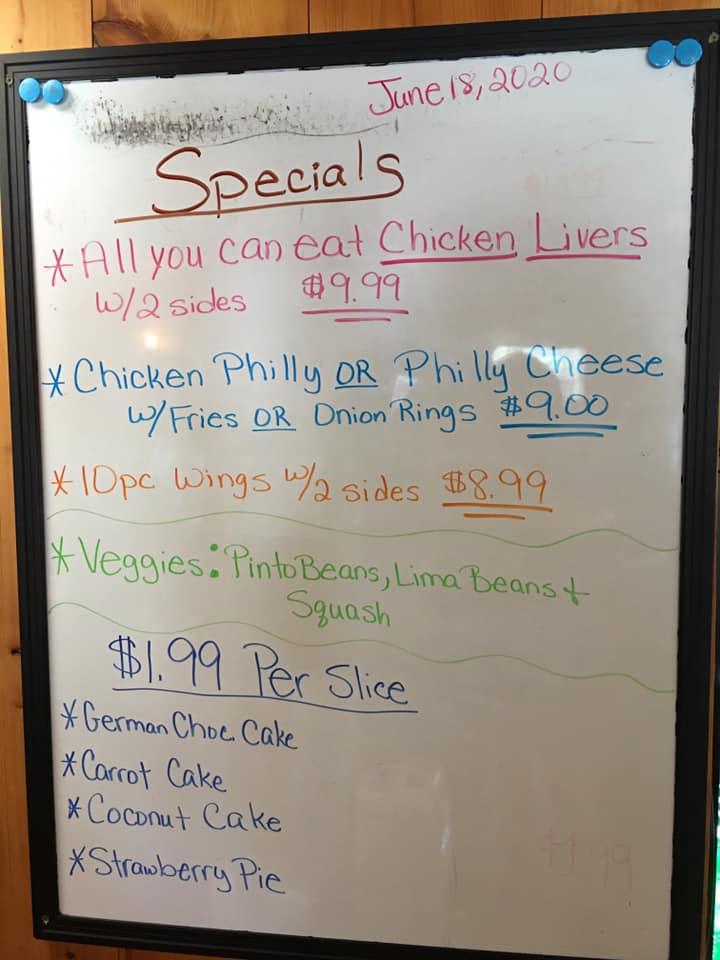 June 18, 2020
Specials
* All you can eat Chicken Livers
w/2 sides $9.99
* Chicken Philly OR Philly Cheese
w/Fries OR Onion Rings $9.00
* 10pc Wings w/2 sides $8.99
* Veggies: Pinto Beans, Lima Beans +
Squash
$1.99 Per Slice
* German Choc. Cake
* Carrot Cake
* Coconut Cake
* Strawberry Pie